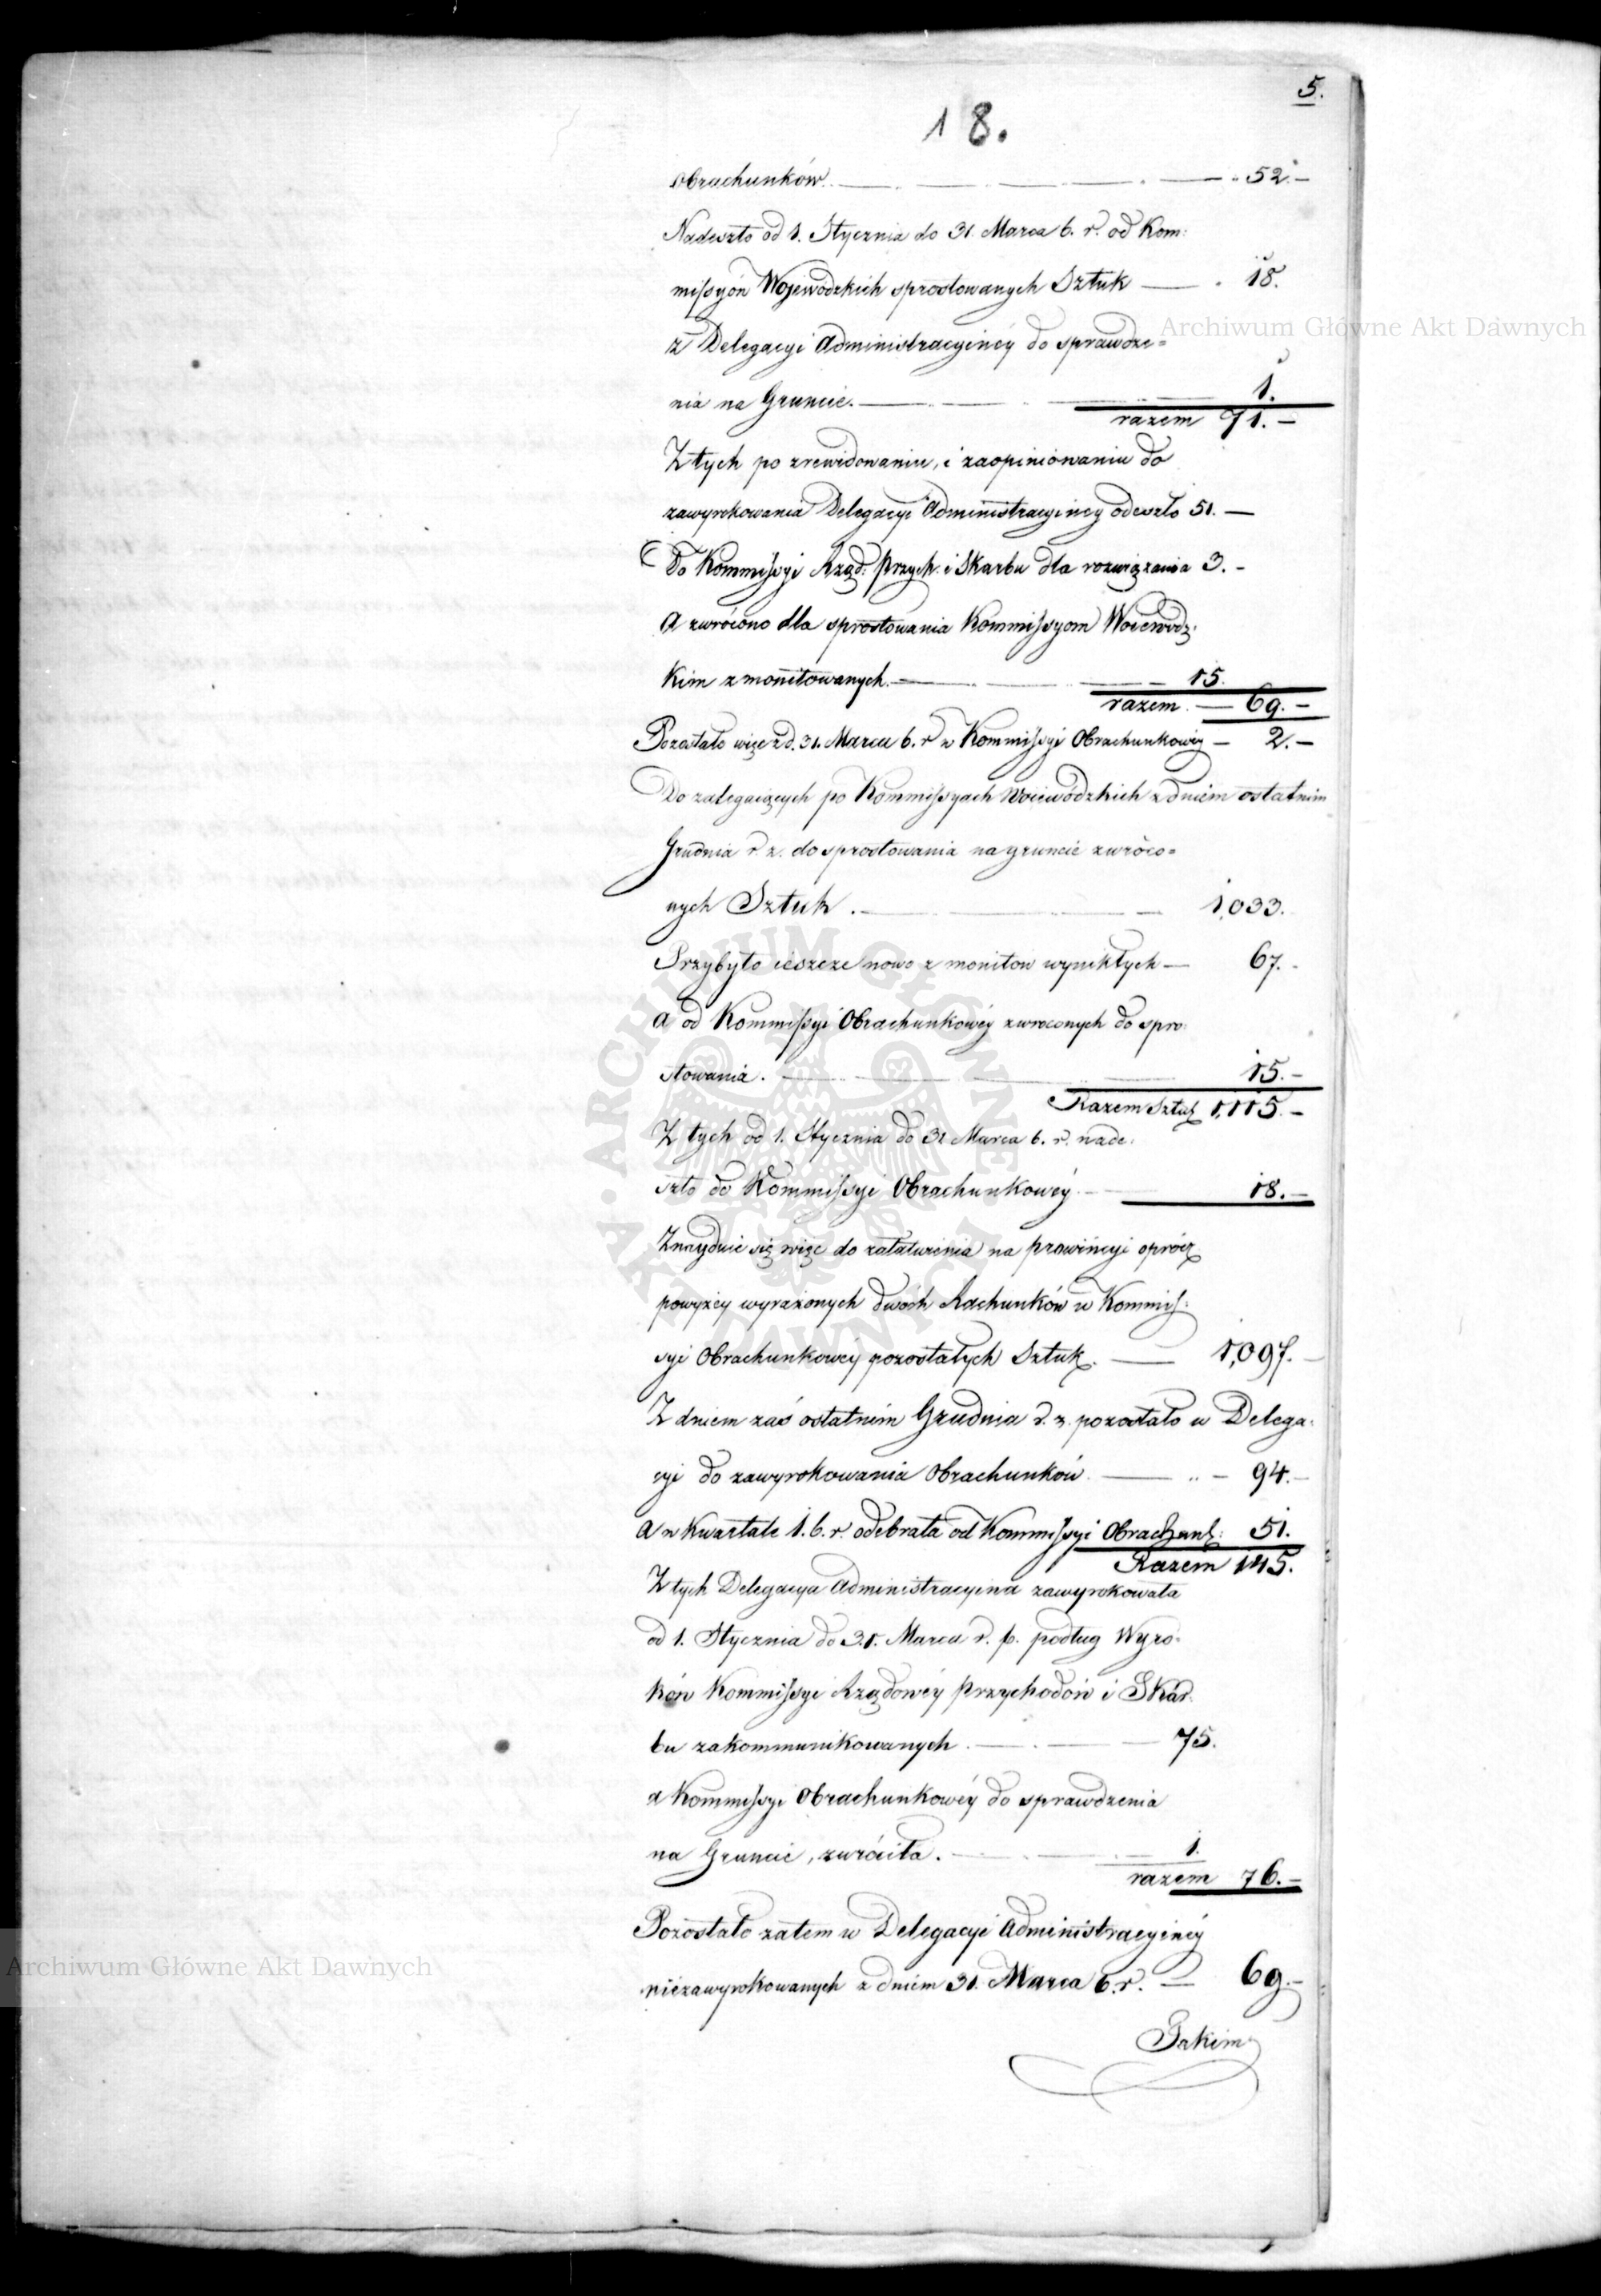 5.
18.
Obrachunków. — 52.—
Nadeszło od 1. Stycznia do 31. Marca b. r. od Kom:
missyów Wojewódzkich sprostowanych Sztuk — 18.
z Delegacyi Administracyinéy do sprawdze=
nia na Gruncie. — 1.
razem 71.—
Z tych po zrewidowaniu, i zaopiniowaniu do
zawyrokowania Delegacyi Administracyinéy odeszło 51. —
Do Kommissyi Rząd: Przych: i Skarbu dla rozwiązania 3. —
a zwrócono dla sprostowania Kommissyom Woiewódz:
kim zmonitowanych. — 15.
razem — 69. —
Pozostało więc z d. 31. Marca b. r. w Kommissyi Obrachunkowéy — 2. —
Do zalegaiących po Kommissyach Woiewódzkich z dniem ostatnim
Grudnia r. z. do sprostowania na gruncie zwróco=
nych Sztuk. — 1,033.
Przybyło ieszcze nowo z monitow wynikłych — 67. —
a od Kommissyi Obrachunkowéy zwroconych do spro:
stowania. — 15. —
Razem Sztuk 1,115. —
Z tych od 1. Stycznia do 31 Marca b. r. nade:
szło do Kommissyi Obrachunkowéy. — 18. —
Znayduie się więc do załatwienia na prowincyi oprócz
powyżey wyrażonych dwóch Rachunków w Kommis:
syi Obrachunkowéy pozostałych Sztuk. — 1,097. —
Z dniem zaś ostatnim Grudnia r. z. pozostało w Delega:
cyi do zawyrokowania Obrachunków. — 94. —
a w Kwartale 1. b. r. odebrała od Kommissyi Obrachunk: 51.
Razem 145.
Z tych Delegacya Administracyina zawyrokowała
od 1. Stycznia do 31. Marca r. b. podług Wyro=
ków Kommissyi Rządowéy Przychodów i Skar:
bu zakommunikowanych. — 75.
a Kommissyi Obrachunkowéy do sprawdzenia
na Gruncie, zwróciła. — 1.
razem 76. —
Pozostało zatem w Delegacyi Administracyinéy
niezawyrokowanych z dniem 31. Marca b. r. — 69. —
Archiwum Główne Akt Dawnych
Archiwum Główne Akt Dawnych
ARCHIWUM GŁÓWNE AKT DAWNYCH